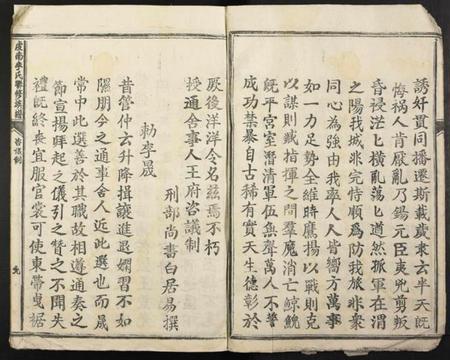 誘奸貫同播遷斯載歲聿云半天既
悔禍人肯厭亂乃錫元臣夷兇剪叛
昔祲茫匕橫亂蕩匕道然孤軍在渭
之陽我城非完恃順爲防我旅非衆
同心為強由我率人人皆嚮方萬事
如一力足勢全維時鷹揚以戰則克
以謀則臧指揮之間羣魔消亡鯨鯢
既平宮室潛清軍伍無聲萬人不驚
成功禁暴自古稀有實天生德彰於
厥後洋洋令名兹焉不朽
授通舍事人王府咨議制
刑部尚書白居易撰
勅李晟
昔嘗仲云升降揖讓進退嫻習不如
隰朋今之通事舍人近此選也而晟
常中此選善於其職故相導通奏之
節宣揚拜起之儀引之贊之不聞失
禮既終喪宜服官裳可使束帶曳裾
虔南李氏聯修族譜
舊誥制
九